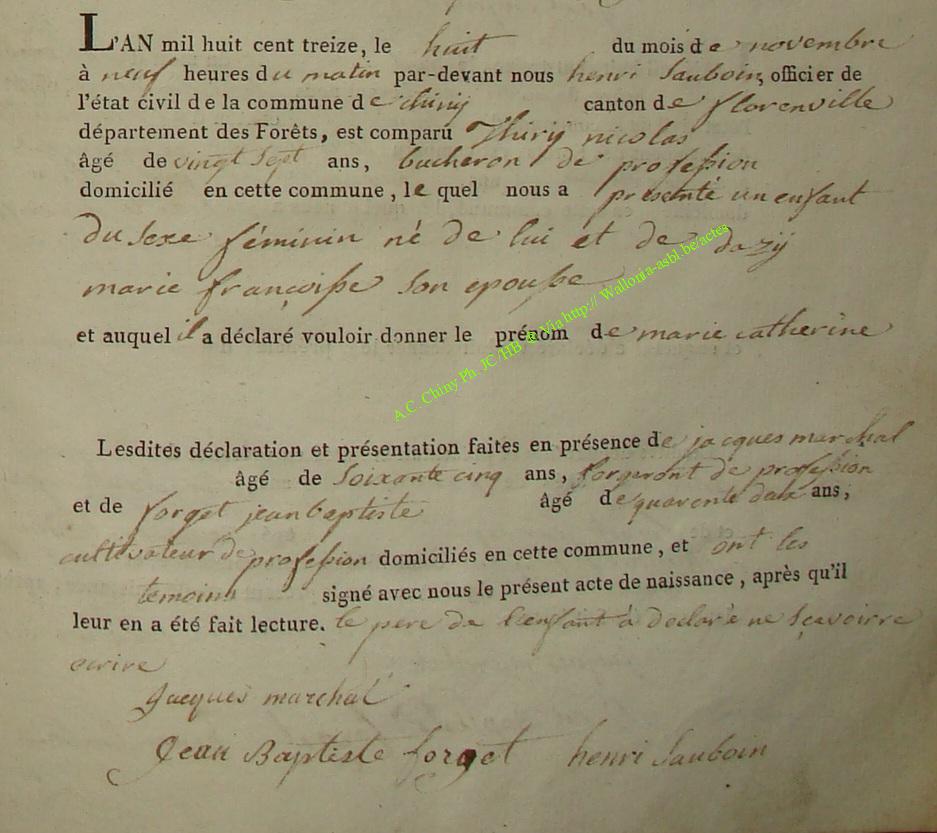 L'AN mil huit cent treize, le huit du mois de novembre
à neuf heures du matin par-devant nous henri Sauboin, officier de
l'état civil de la commune de chiny canton de florenville
département des Forêts, est comparu Thiry nicolas
âgé de vingt Sept ans, bucheron de profession
domicilié en cette commune, le quel nous a présenté un enfant
du Sexe féminin né de lui et de dazÿ
marie françoisse son epousse
et auquel il a déclaré vouloir donner le prénom de marie catherine
A.C. Chiny Ph. JC/HB © Via http:// Wallonia-asbl.be/actes
Lesdites déclaration et présentation faites en présence de jacques marchal
âgé de Soixante cinq ans, forgeront de profession
et de forget jean baptiste âgé de quarente deux ans,
cultivateur de profession domiciliés en cette commune, et ont les
temoins signé avec nous le présent acte de naissance, après qu'il
leur en a été fait lecture. le pere de l'enfant à declaré ne sçavoirre
ecrire
Jacques marchal
Jean Baptiste forget henri Sauboin